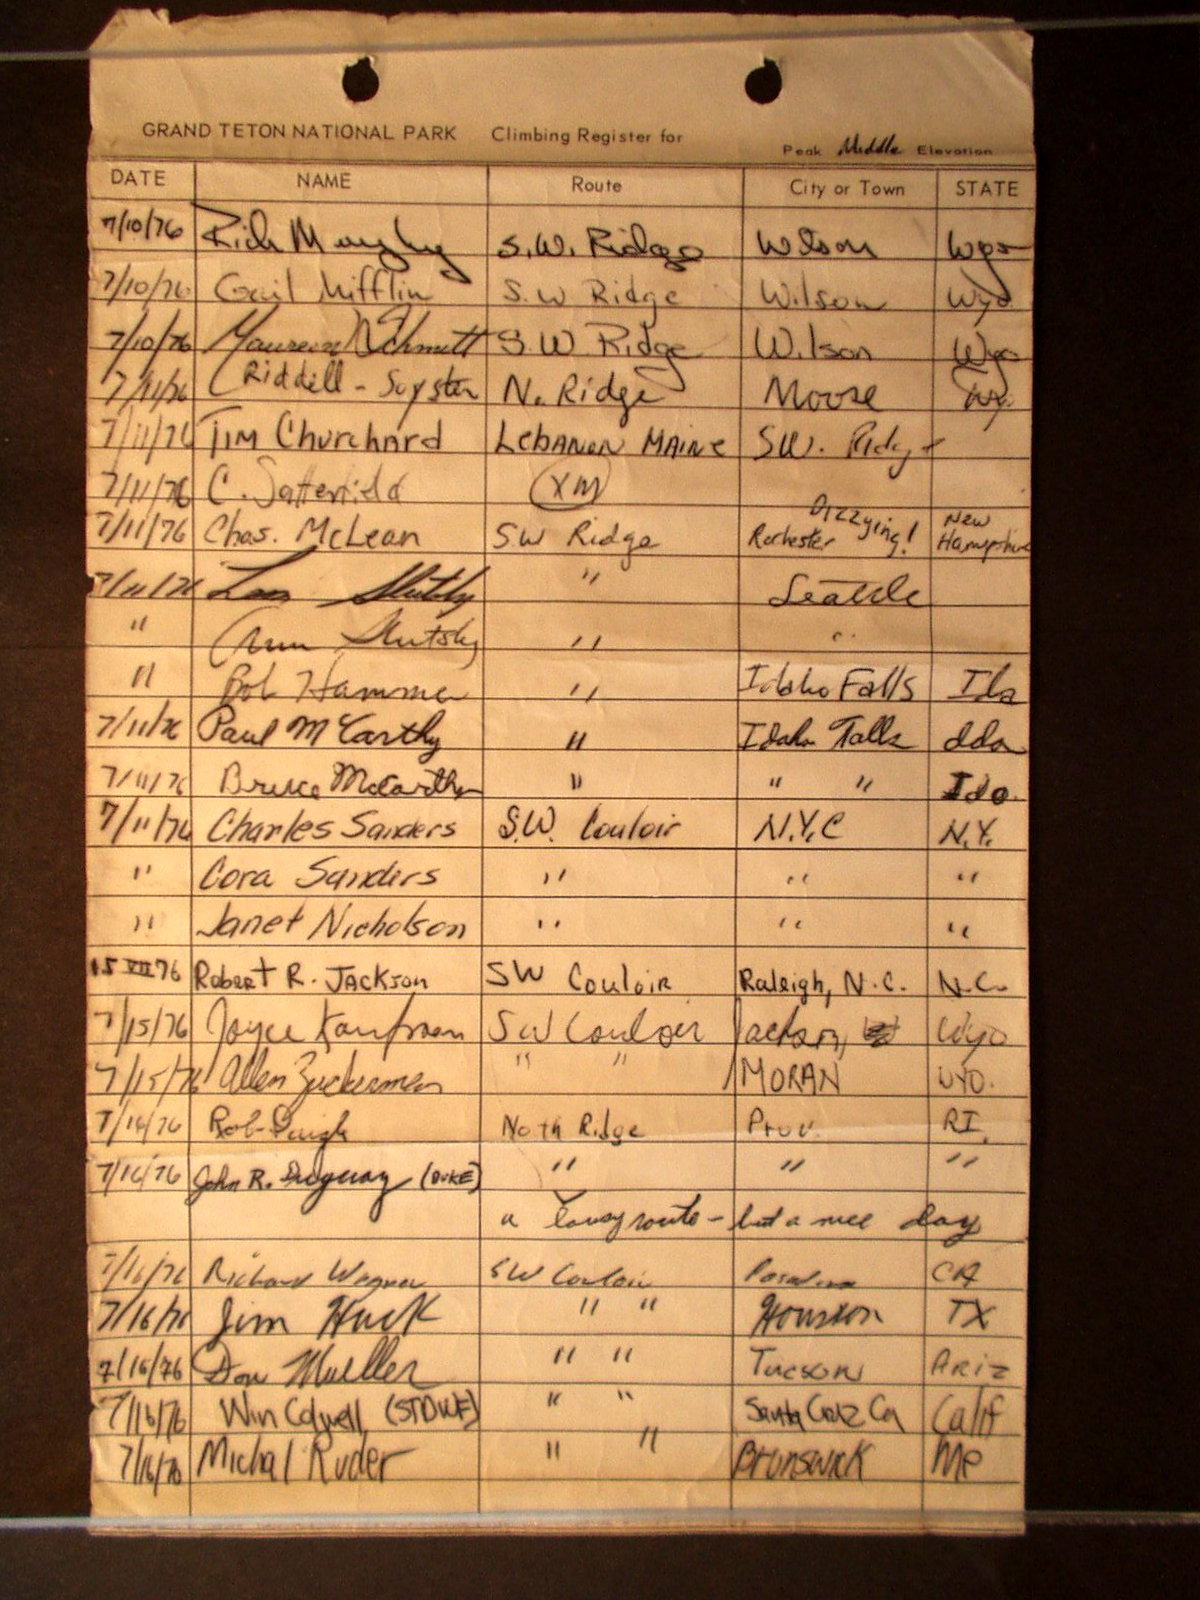 GRAND TETON NATIONAL PARK Climbing Register for Peak Middle Elevation
DATE NAME Route City or Town STATE
7/10/76 Rick S.W. Ridge Wilson Wyo
7/10/76 Gail Mifflin S.W Ridge Wilson Wyo
7/10/76 Maureen Schmitt S.W Ridge Wilson Wyo
7/11/76 Riddell - Soyster N. Ridge Moose Wy.
7/11/76 Tim Churchard Lebanon Maine SW. Ridge
7/11/76 C. Satterfield XM
7/11/76 Chas. McLean SW Ridge Rochester Dizzying! New Hampshire
7/11/76 Slutsky " Seattle
" Ann Slutsky " "
" Bob Hammer " Idaho Falls Ida
7/11/76 Paul McCarthy " Idaho Falls Ida
7/11/76 Bruce McCarthy " " " Ida.
7/11/76 Charles Sanders S.W. Couloir N.Y.C N.Y.
" Cora Sanders " " "
" Janet Nicholson " " "
15 VII 76 Robert R. Jackson SW Couloir Raleigh, N.C. N.C.
7/15/76 Joyce Kaufman SW Couloir Jackson, Wyo
7/15/76 Allen Zuckerman " " MORAN WYO.
7/16/76 Rob North Ridge Prov. RI.
7/16/76 John R. (DUKE) " " "
a lousy route - but a nice day
7/16/76 Richard Wagner SW Couloir Pasadena CA
7/16/76 Jim Huck " " Houston TX
7/16/76 Don Mueller " " Tucson Ariz
7/16/76 Win (STDWF) " " Santa Cruz Ca Calif
7/16/76 Michal Ruder " " Brunswick Me